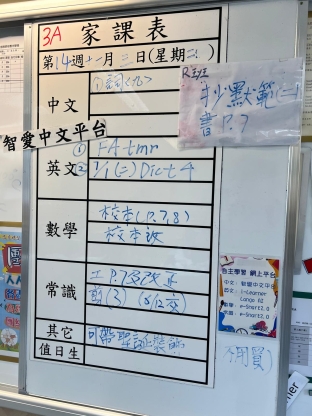 3A 家課表
第14週十二月三日(星期二)
中文
①詞(九)
智愛中文平台
英文
① FA tmr
② 3/1(二) Dict 4
數學
校本(P.7,8)
校本
常識
工 P.7及改正
剪(3) (6/12交)
其它
可帶聖誕裝飾
值日生
R班
抄默範(二)
書 P.7
自主學習 網上平台
中文: 智愛中文平台
英文: i-Learner
數學:
常識: